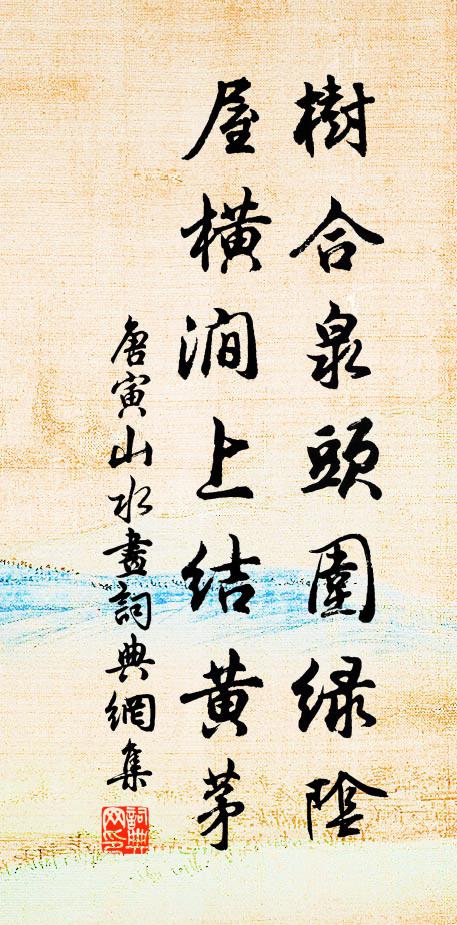 樹合泉頭圍綠陰
屋橫澗上結黃茅
唐寅山水畫詞典網集
詞典網印